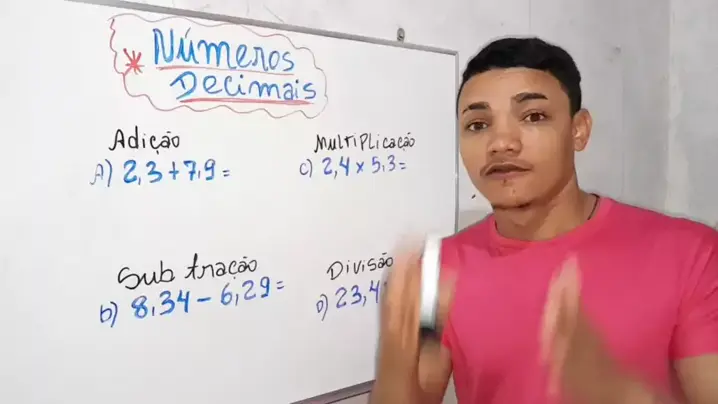 * Números
Decimais
Adição
A) 2,3 + 7,9 =
Multiplicação
c) 2,4 × 5,3 =
Subtração
b) 8,34 – 6,29 =
Divisão
D) 23,4